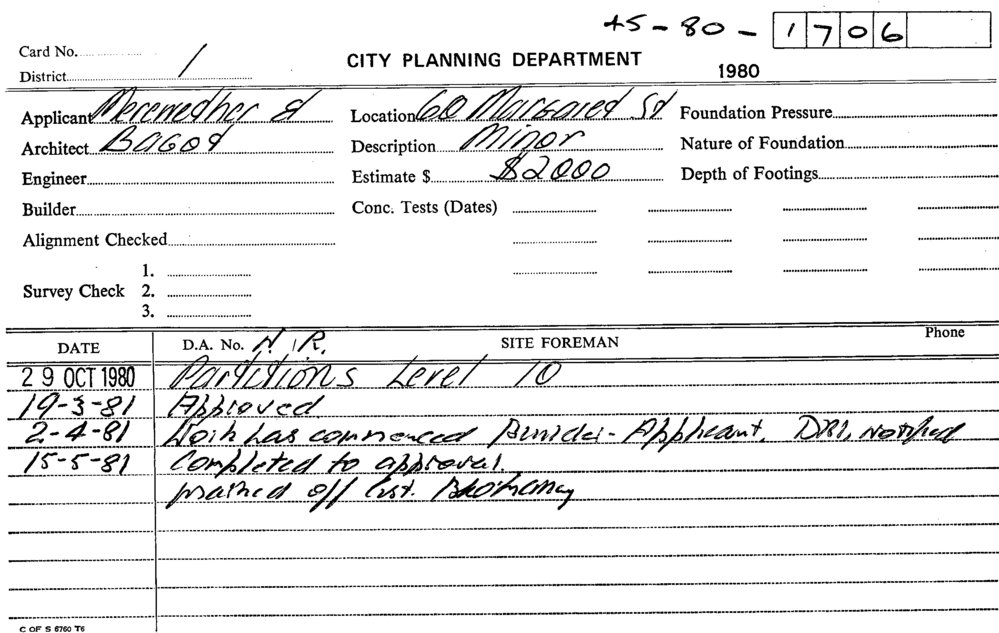 45-80-1706
Card No.
District 1
CITY PLANNING DEPARTMENT
1980
Applicant Merewether &
Architect Bagot
Engineer
Builder
Alignment Checked
Survey Check
1.
2.
3.
Location 60 Margaret St
Description Minor
Estimate $ $2000
Conc. Tests (Dates)
Foundation Pressure
Nature of Foundation
Depth of Footings
DATE D.A. No. N.R. SITE FOREMAN Phone
29 OCT 1980 Partitions Level 10
19-3-81 Approved
2-4-81 Work has commenced Builder- Applicant, notified
15-5-81 Completed to approval.
marked off
C OF S 6760 T6